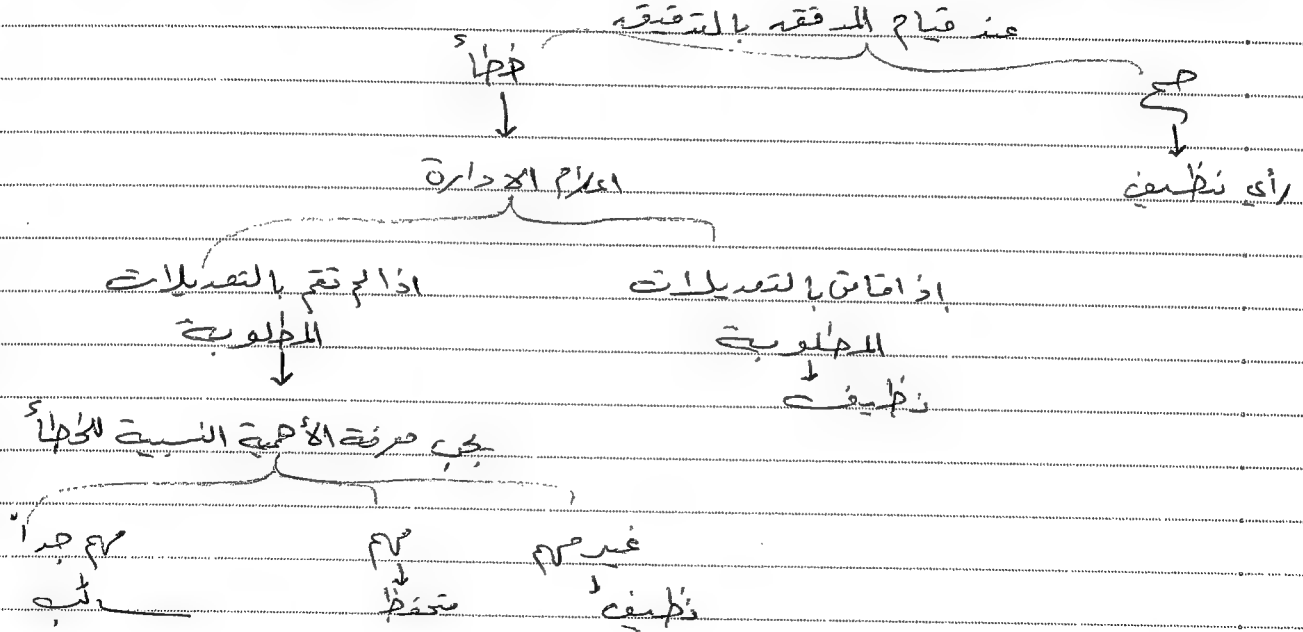 عند قيام المدقق بالتدقيق
صح
خطأ
رأي نظيف
اعلام الادارة
إذا قامت بالتعديلات
المطلوبة
نظيف
اذا لم تقم بالتعديلات
المطلوبة
يجب معرفة الأهمية النسبية للخطأ
غير مهم
نظيف
مهم
متحفظ
مهم جداً
سالب